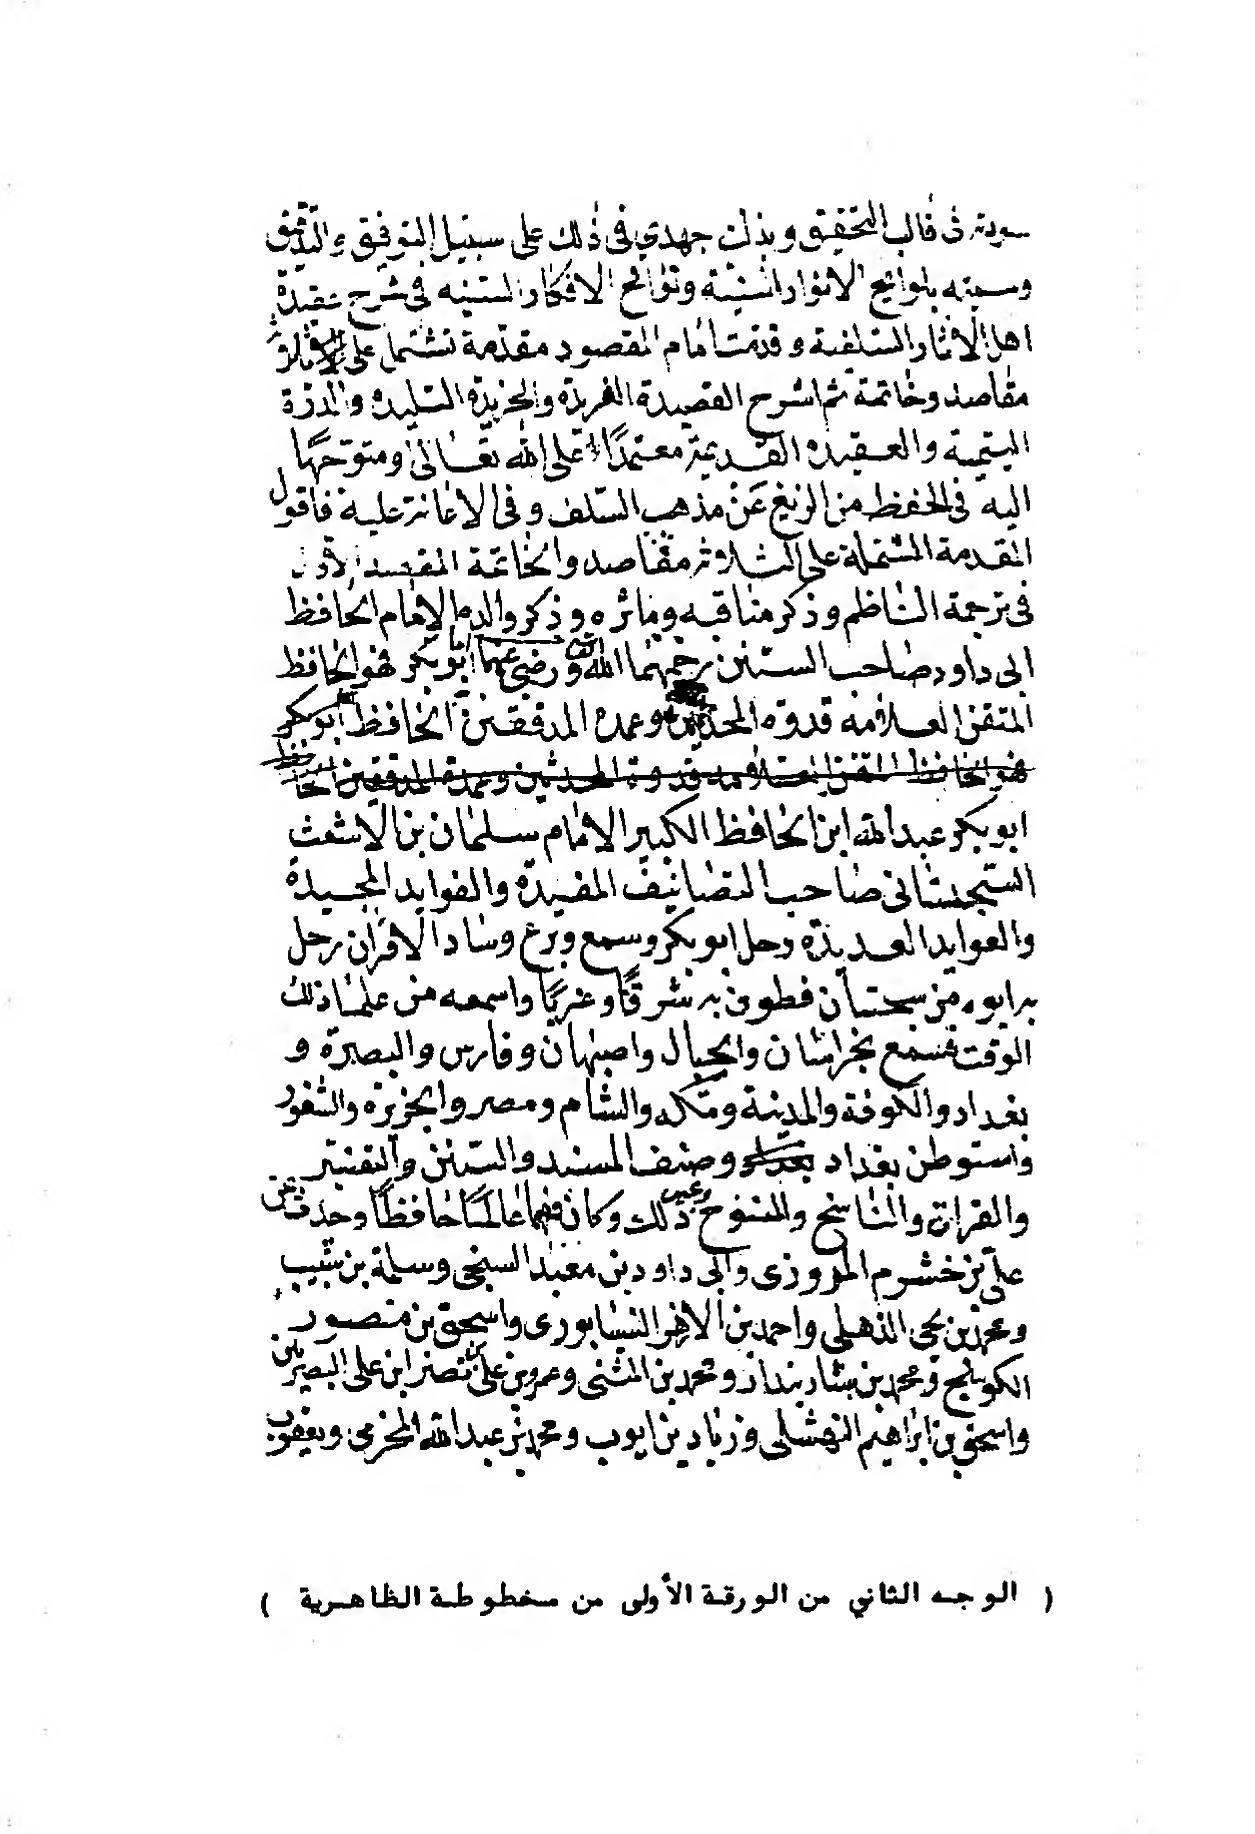 سودته فى قالب التحقيق وبذلت جهدي فى ذلك على سبيل التوفيق والتدقيق
وسميته بلوائح الانوار السنية ونوائح الافكار السنيه فى شرح عقيدة
اهل الاثار السلفية وقدمت أمام المقصود مقدمة تشتمل على ثلاثة
مقاصد وخاتمة ثم اشرح القصيدة الفريدة والخريدة التليده والدرة
اليتيمة والعقيده القديمة معتمدًا على الله تعالى ومتوجهًا
اليه فى الحفظ من الزيغ عَنْ مذهب السّلف وفى الاعانة عليه فاقول
المقدمة المشتملة على الثلاثة مقاصد والخاتمة المقصد الأول
فى ترجمة الناظم وذكر مناقبه ومآثره وذكر والده الامام الحافظ
ابى داود صاحب السنن رحمهما الله ورضي عنهما اما ابو بكر فهو الحافظ
المتقن العلامة قدوه المحدثين وعمده المدققين الحافظ ابو بكر
فهو الحافظ المتقن العلامه قدوة المحدثين وعمدة المدققين الحافظ
ابو بكر عبدالله ابن الحافظ الكبير الامام سلمان بن الاشعث
السّجستانى صاحب التصانيف المفيدة والفوايد المجيدة
والعوايد العديدة رحل ابو بكر وسمع وبرع وساد الاقران رحل
به ابوه من سجستان فطوف به شرقًا وغربًا واسمعه من علما ذلك
الوقت فسمع بخراسان والجبال واصبهان وفارس والبصرة و
بغداد والكوفة والمدينة ومكه والشام ومصر والجزيره والثغور
واستوطن بغداد بغداد وصنف المسند والسنن والتفسير
والقران والناسخ والمنسوخ وغير ذلك وكان فهما عالمًا حافظًا وحدث عن
على بن خشرم المروزى وابى داود بن معبد السنجى وسلمة بن شبيب
ومحمد بن يحيى الذهلى واحمد بن الازهر النيسابورى واسحق بن منصور
الكوسج ومحمد بن بشار بندار ومحمد بن المثنى وعمرو بن على بن نصر ابن على البصريين
واسحق بن ابراهيم النهشلى وزياد بن ايوب ومحمد بن عبدالله المخرمى ويعقوب
( الوجه الثاني من الورقة الأولى من مخطوطة الظاهرية )